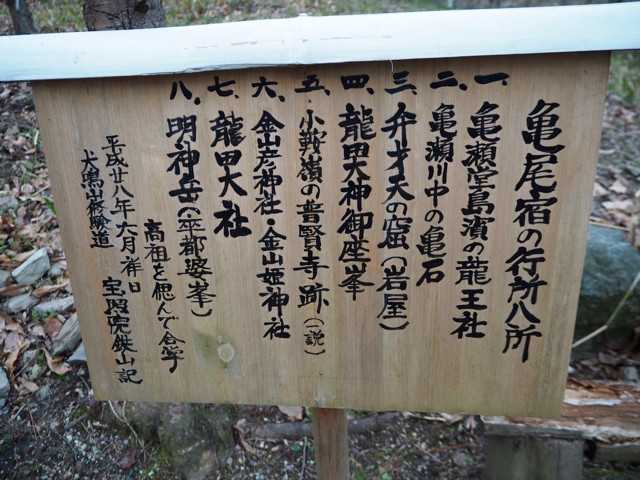 亀尾宿の行所八所
一、亀瀬堂島濱の龍王社
二、亀瀬川中の亀石
三、弁才天の窟（岩屋）
四、龍田大神御座峯
五、小鞍嶺の普賢寺跡（一説）
六、金山彦神社・金山姫神社
七、龍田大社
八、明神岳（卒都婆峯）
高祖を偲んで合掌
平成廿八年六月吉祥日
犬鳴山修験道
宝照院鉄山記